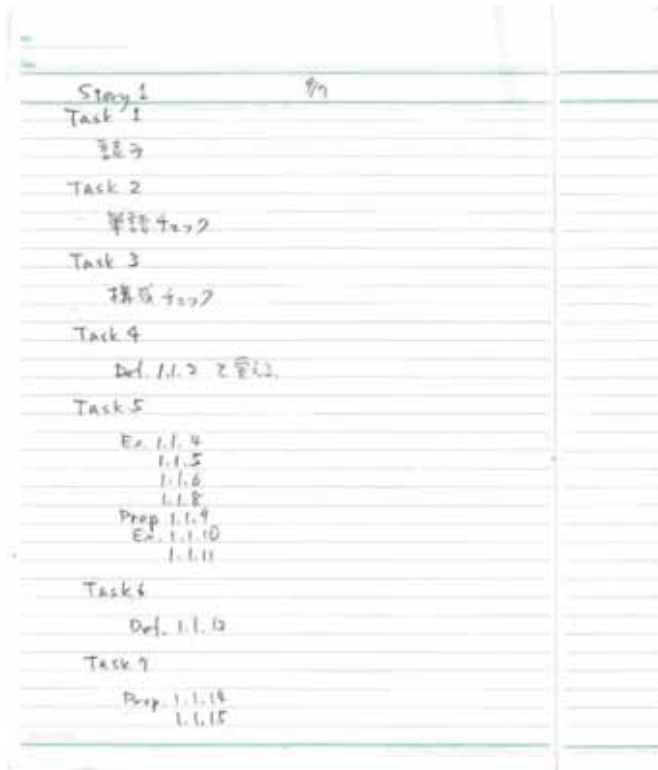 Story 1 9/7
Task 1
読み
Task 2
単語チェック
Task 3
構成チェック
Task 4
Def. 1.1.3
Task 5
Ex. 1.1.4
1.1.5
1.1.6
1.1.8
Prop 1.1.9
Ex. 1.1.10
1.1.11
Task 6
Def. 1.1.12
Task 7
Prop. 1.1.14
1.1.15